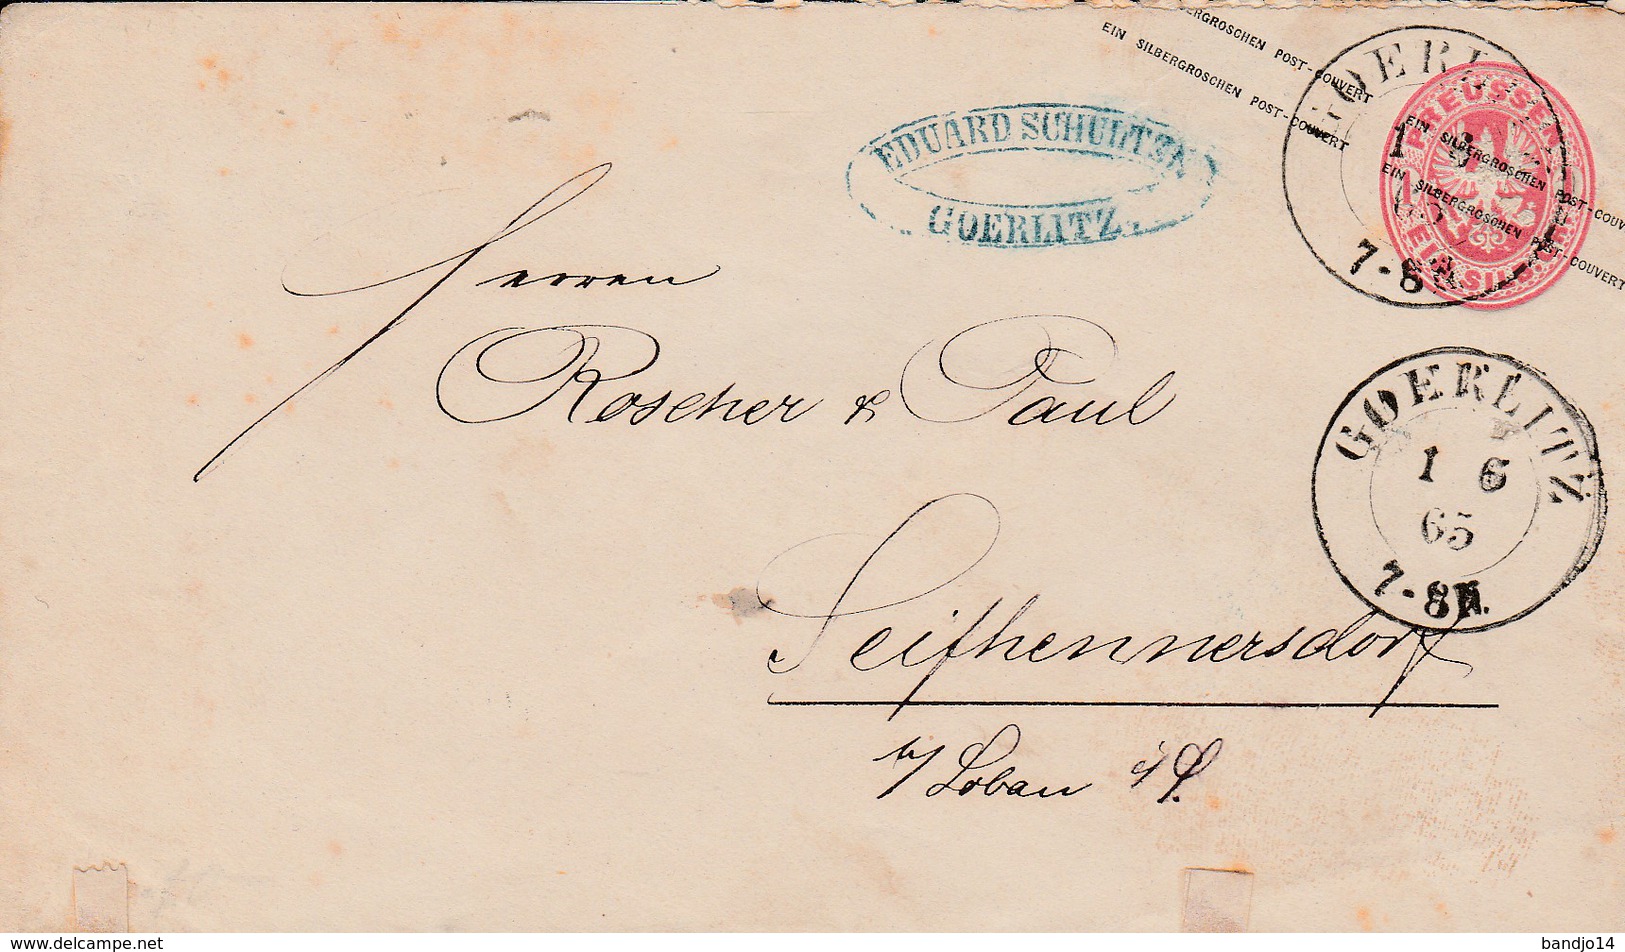 EIN SILBERGROSCHEN POST-COUVERT
EIN SILBERGROSCHEN POST-COUVERT
EIN SILBERGROSCHEN POST-COUV
EIN SILBERGROSCHEN POST-COUVERT
PREUSSEN
EIN SILB. GR.
GOERLITZ
1 6
65
7-8 N.
EDUARD SCHULTZE
GOERLITZ.
Herren
Roscher & Paul
GOERLITZ
1 6
65
7-8 N.
Seifhennersdorf
Löbau
www.delcampe.net
bandjo14